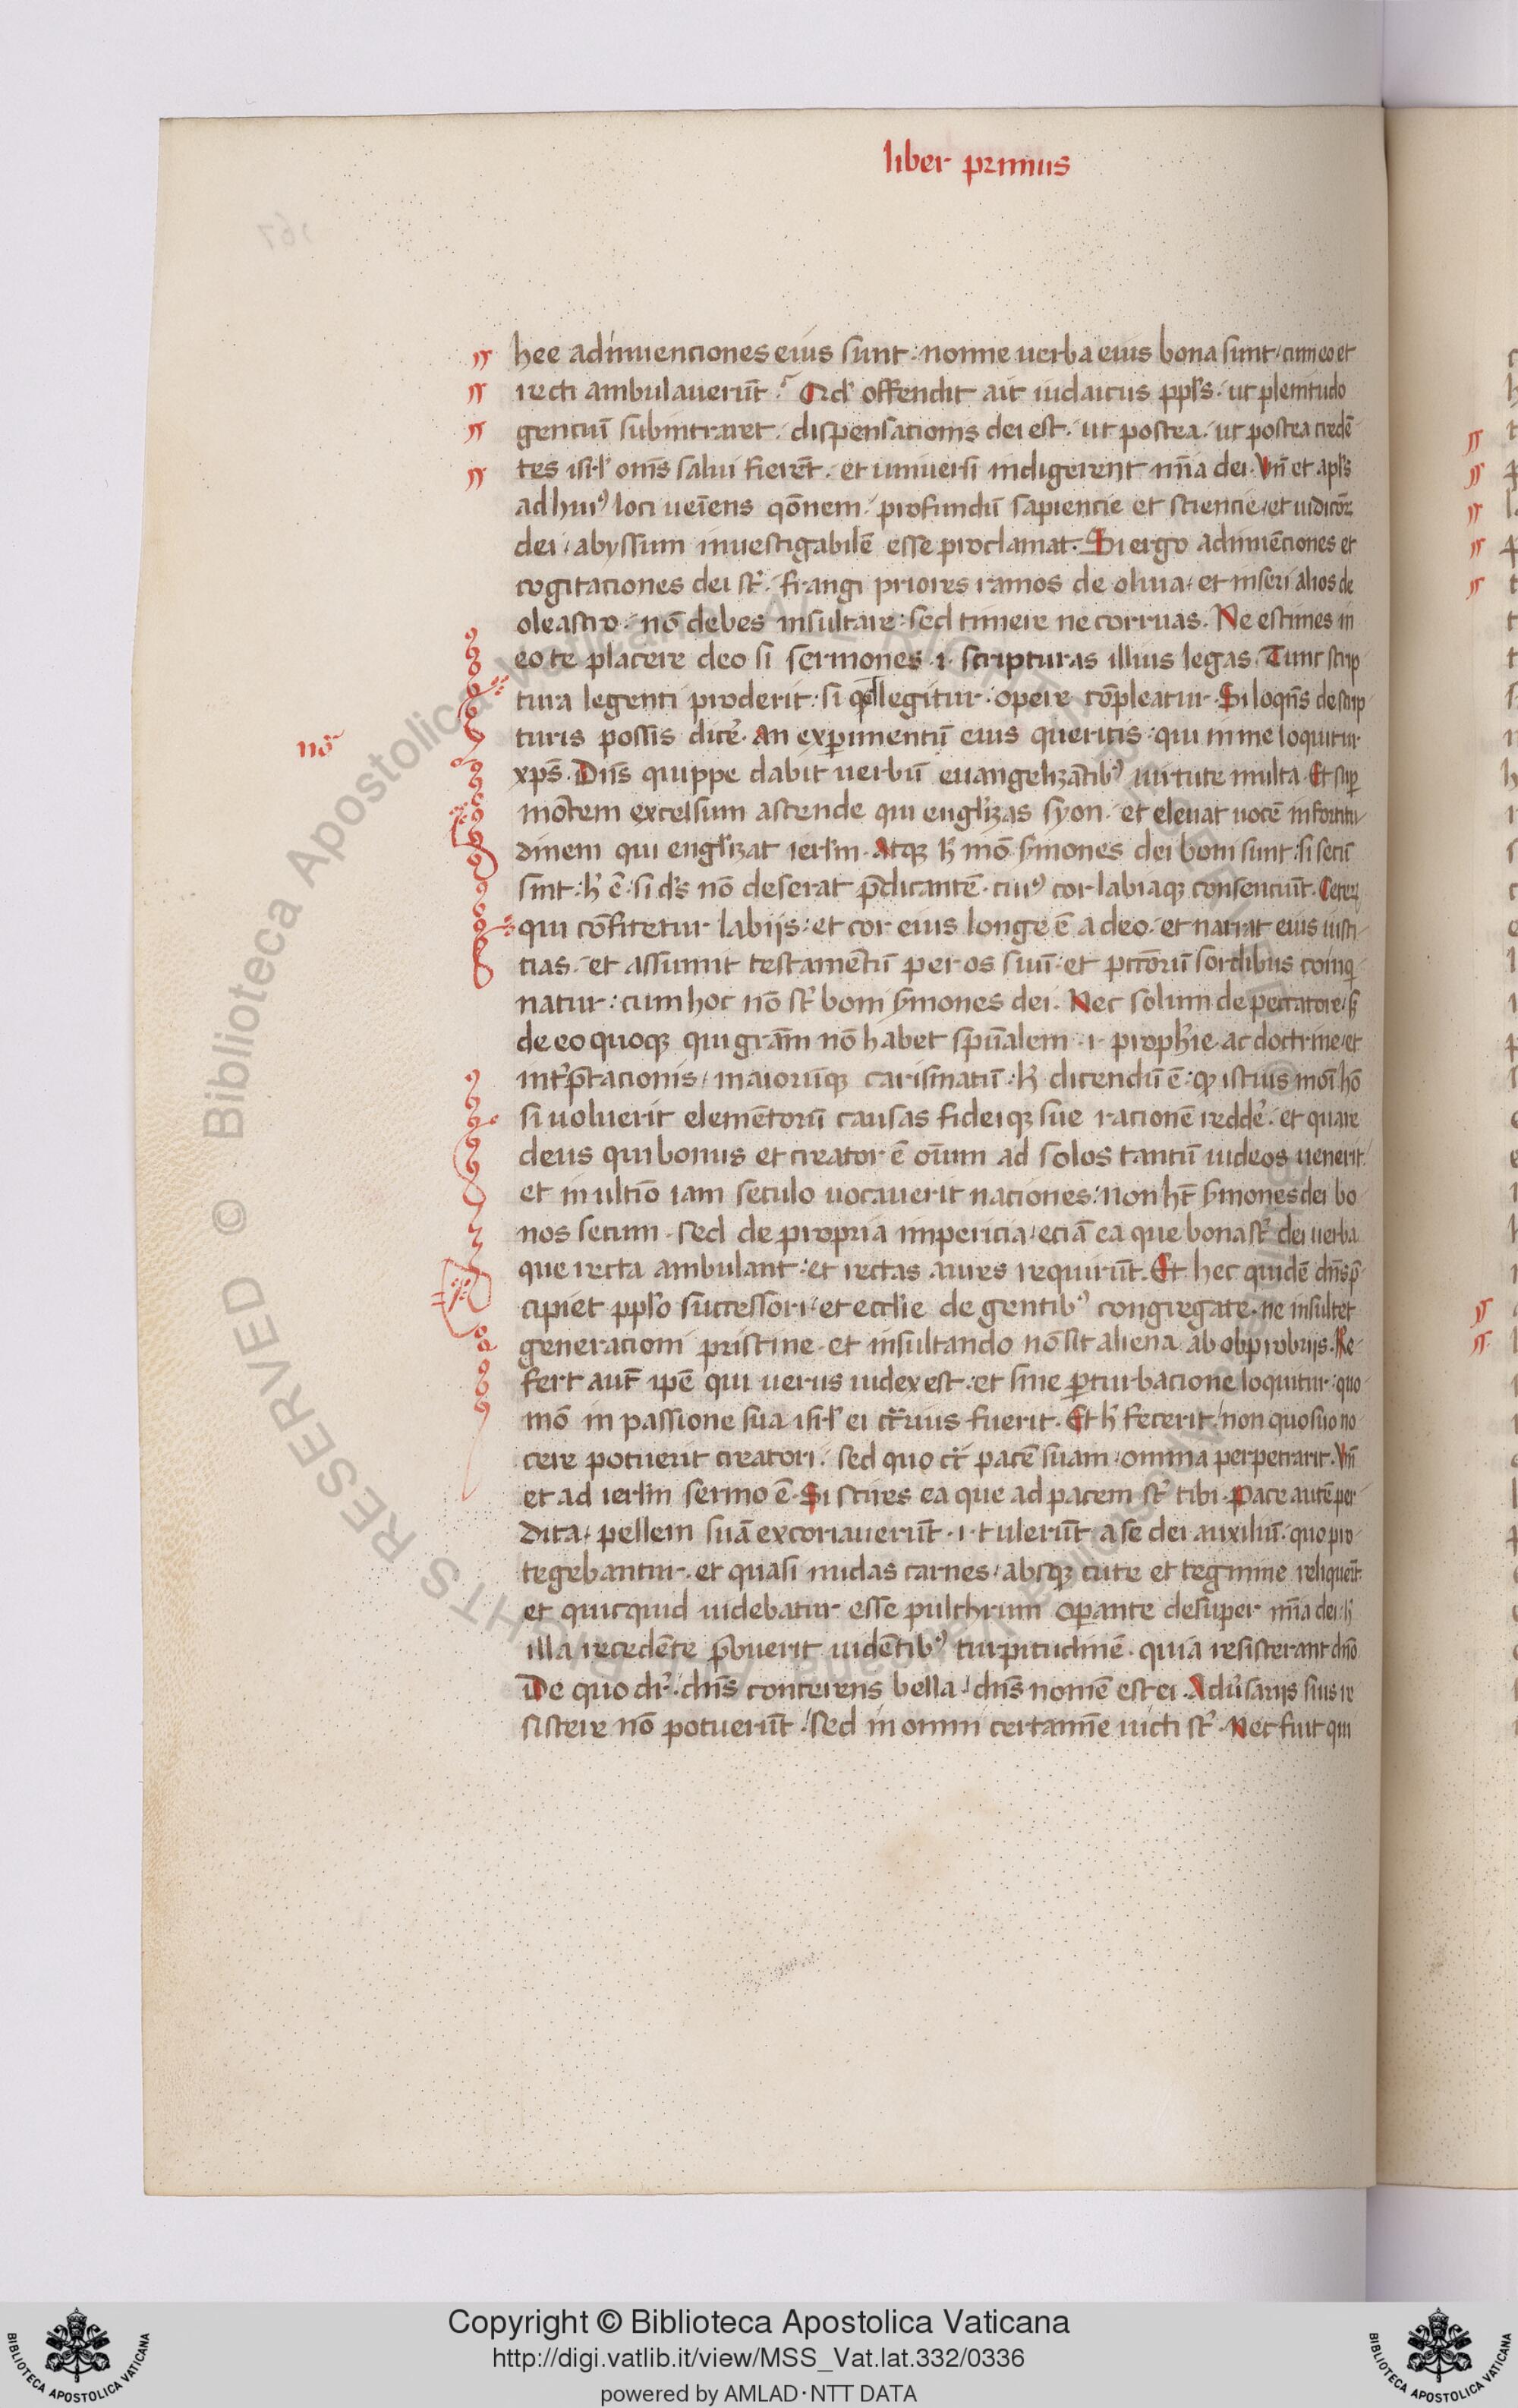 liber primus
hee adinuenciones eius sunt. nonne uerba eius bona sunt / cum eo et
recti ambulauerūt. Qd' offendit ait iudaicus ppl's. ut plenitudo
genciū subintraret. dispensacionis dei est. ut postea. ut postea credē-
tes isr'l om̄s salui fierēt. et uniuersi indigerent mīa dei. Vn̄ et apl's
ad huiꝰ loci ueīens qōnem. profundū sapiencie et sciencie / et iudicōꝝ
dei / abyssum inuestigabilē esse proclamat. Si ergo adinuēciones et
cogitaciones dei st'. frangi priores ramos de oliua / et inseri alios de
oleastro. nō debes insultare: sed timere ne corruas. Ne estimes in
eo te placere deo si sermones .i. scripturas illius legas. Tunc scrip-
tura legenti proderit: si qd legitur. opere cōpleatur. Si loquēs de scrip-
turis possis dice'. An experimentū eius queritis. qui in me loquitur
nō
xp̄s. Dn̄s quippe dabit uerbū euangelizātibꝰ uirtute multa. Et sup
mōtem excelsum ascende qui eugl'izas syon. et eleuat uocē in fortitu-
dinem qui eugl'izat ierl'm. Atqꝫ h' mō s'mones dei boni sunt: si secū
sint: h' ē. si d's nō deserat p̄dicantē. cuiꝰ cor labiaqꝫ consenciūt. Ceteꝝ
qui cōfitetur labijs: et cor eius longe ē a deo. et narrat eius iusti-
cias. et assumit testamētū per os suū. et pctōrū sordibus coinqi-
natur: cum hoc nō st' boni s'mones dei. Nec solum de peccatore / s'
de eo quoqꝫ qui grām nō habet spūalem .i. proph'ie ac doctrine / et
int'p̄tacionis / maiorūqꝫ carismatū: h' dicendū ē: qꝫ istius moī hō
si uoluerit elemētorū causas fideiqꝫ sue racionē redde'. et quare
deus qui bonus et creator ē oīum ad solos tantū iudeos uenerit
et in ultīo iam seculo uocauerit naciones: non hēt s'mones dei bo-
nos secum. sed de propria impericia / eciā ea que bona st' dei uerba
que recta ambulant. et rectas aures requirūt. Et hec quidē dn̄s p̄-
cipiet ppl'o successori / et eccl'ie de gentibꝰ congregate. ne insultet
generacioni pristine. et insultando nō sit aliena ab obprobrijs. Re-
fert aut̄ ipē qui uerus iudex est. et sine perturbacione loquitur. quo
mō in passione sua isr'l ei cōt'rius fuerit. Et h' fecerit. non quo suo no-
cere potuerit creatori. sed quo ct' pacē suam / omnia perpetrarit. Vn̄
et ad ierl'm sermo ē. Si scires ea que ad pacem st' tibi. Pace autē per-
dita / pellem suā excoriauerūt .i. tulerūt a se dei auxiliū. quo pro-
tegebantur. et quasi nudas carnes / absqꝫ cute et tegmine reliquerūt.
et quicquid uidebatur esse pulchrum operante desuper mīa dei: h'
illa recedēte p̄buerit uidētibꝰ turpitudinē. quia resisterant dn̄o
De quo dr'. dn̄s conterens bella. dn̄s nomē est ei. Adu'sarijs suis re
sistere nō potuerūt. sed in omni certamīe uicti st'. Nec fuit qui
Copyright © Biblioteca Apostolica Vaticana
http://digi.vatlib.it/view/MSS_Vat.lat.332/0336
powered by AMLAD·NTT DATA